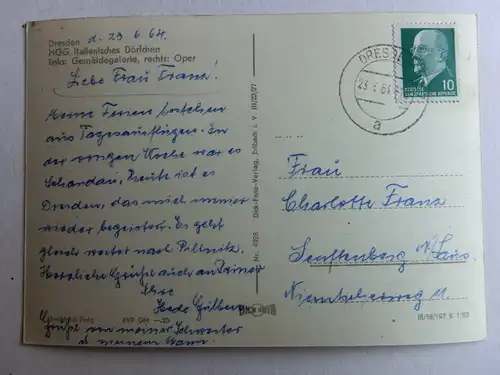 Dresden d. 23.6.64.
HOG Italienisches Dörfchen
links: Gemäldegalerie, rechts: Oper
Liebe Frau Franz!
Meine Ferien bestehen
aus Tagesausflügen. In
der vorigen Woche war es
Schandau, heute ist es
Dresden, das mich immer
wieder begeistert. Es geht
gleich weiter nach Pillnitz.
Herzliche Grüße auch an Rainer
Ihre
Hede
Grüße von meiner Schwester
u. meinem Mann.
EVP DM —.20
Nr. 4928 Dick-Foto-Verlag, Erlbach i. V. III/20/21
DRESDEN
a
10
DEUTSCHE
DEMOKRATISCHE REPUBLIK
Frau
Charlotte Franz
Senftenberg N. Laus.
III/18/197 K 1/63